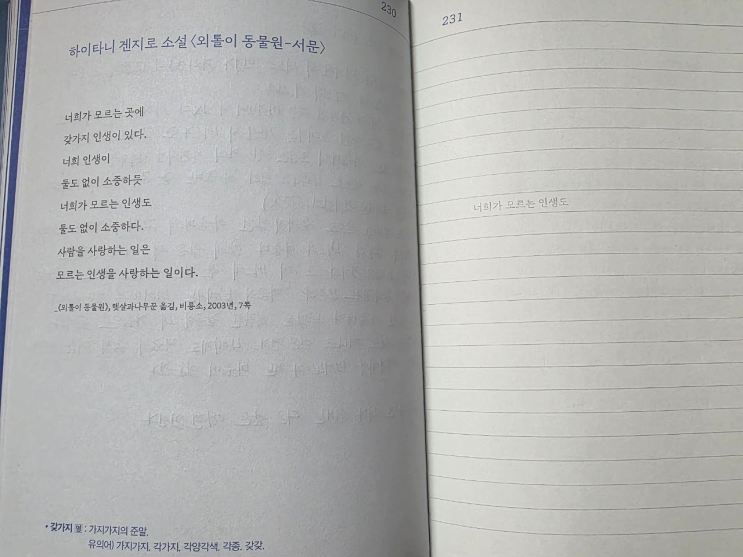 230
하이타니 겐지로 소설 〈외톨이 동물원-서문〉
너희가 모르는 곳에
갖가지 인생이 있다.
너희 인생이
둘도 없이 소중하듯
너희가 모르는 인생도
둘도 없이 소중하다.
사람을 사랑하는 일은
모르는 인생을 사랑하는 일이다.
_〈외톨이 동물원〉, 햇살과나무꾼 옮김, 비룡소, 2003년, 7쪽
* 갖가지 몡 : 가지가지의 준말.
유의어) 가지가지, 각가지, 각양각색, 각종, 갖갖.
231
너희가 모르는 인생도